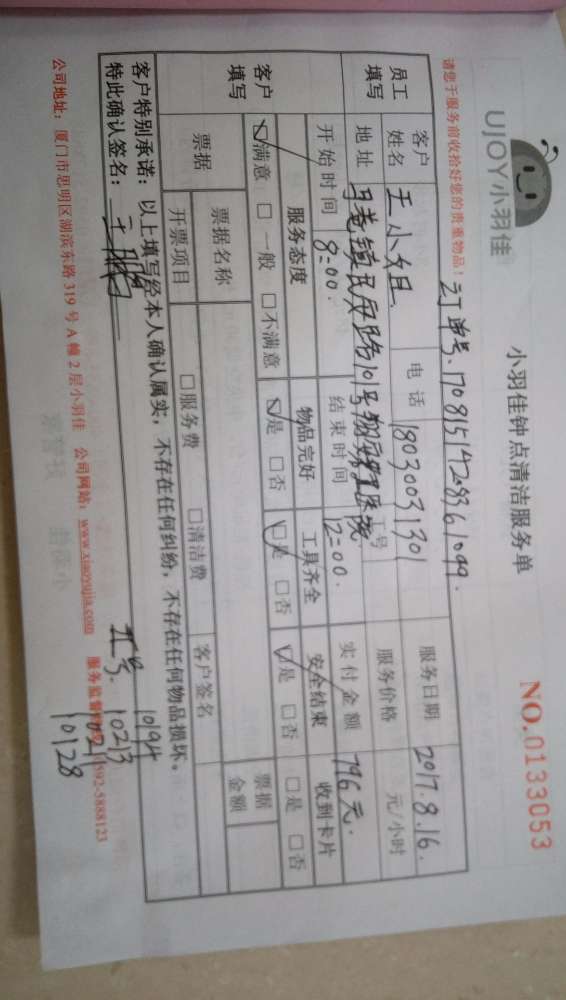 UJOY小羽佳
小羽佳钟点清洁服务单
NO.0133053
请您于服务前收拾好您的贵重物品！
订单号:17081514208361099.
员工填写
客户姓名 王小姐 电话 18030031301 服务日期 2017.8.16.
地址 马巷镇民安路101号翔安 医院 工号 服务价格 元/小时
开始时间 8:00. 结束时间 12:00. 实付金额 796元.
客户填写
服务态度 物品完好 工具齐全 安全结束 收到卡片
☑满意 □一般 □不满意 ☑是 □否 ☑是 □否 ☑是 □否 □是 □否
票据 票据名称 票据金额
开票项目 □服务费 □清洁费 客户签名
客户特别承诺：以上填写经本人确认属实，不存在任何纠纷，不存在任何物品损坏。
特此确认签名：
工号: 10194
10213
10128
公司地址：厦门市思明区湖滨东路319号A幢2层小羽佳 公司网站：www.xiaoyujia.com 服务监督 0592-5888123